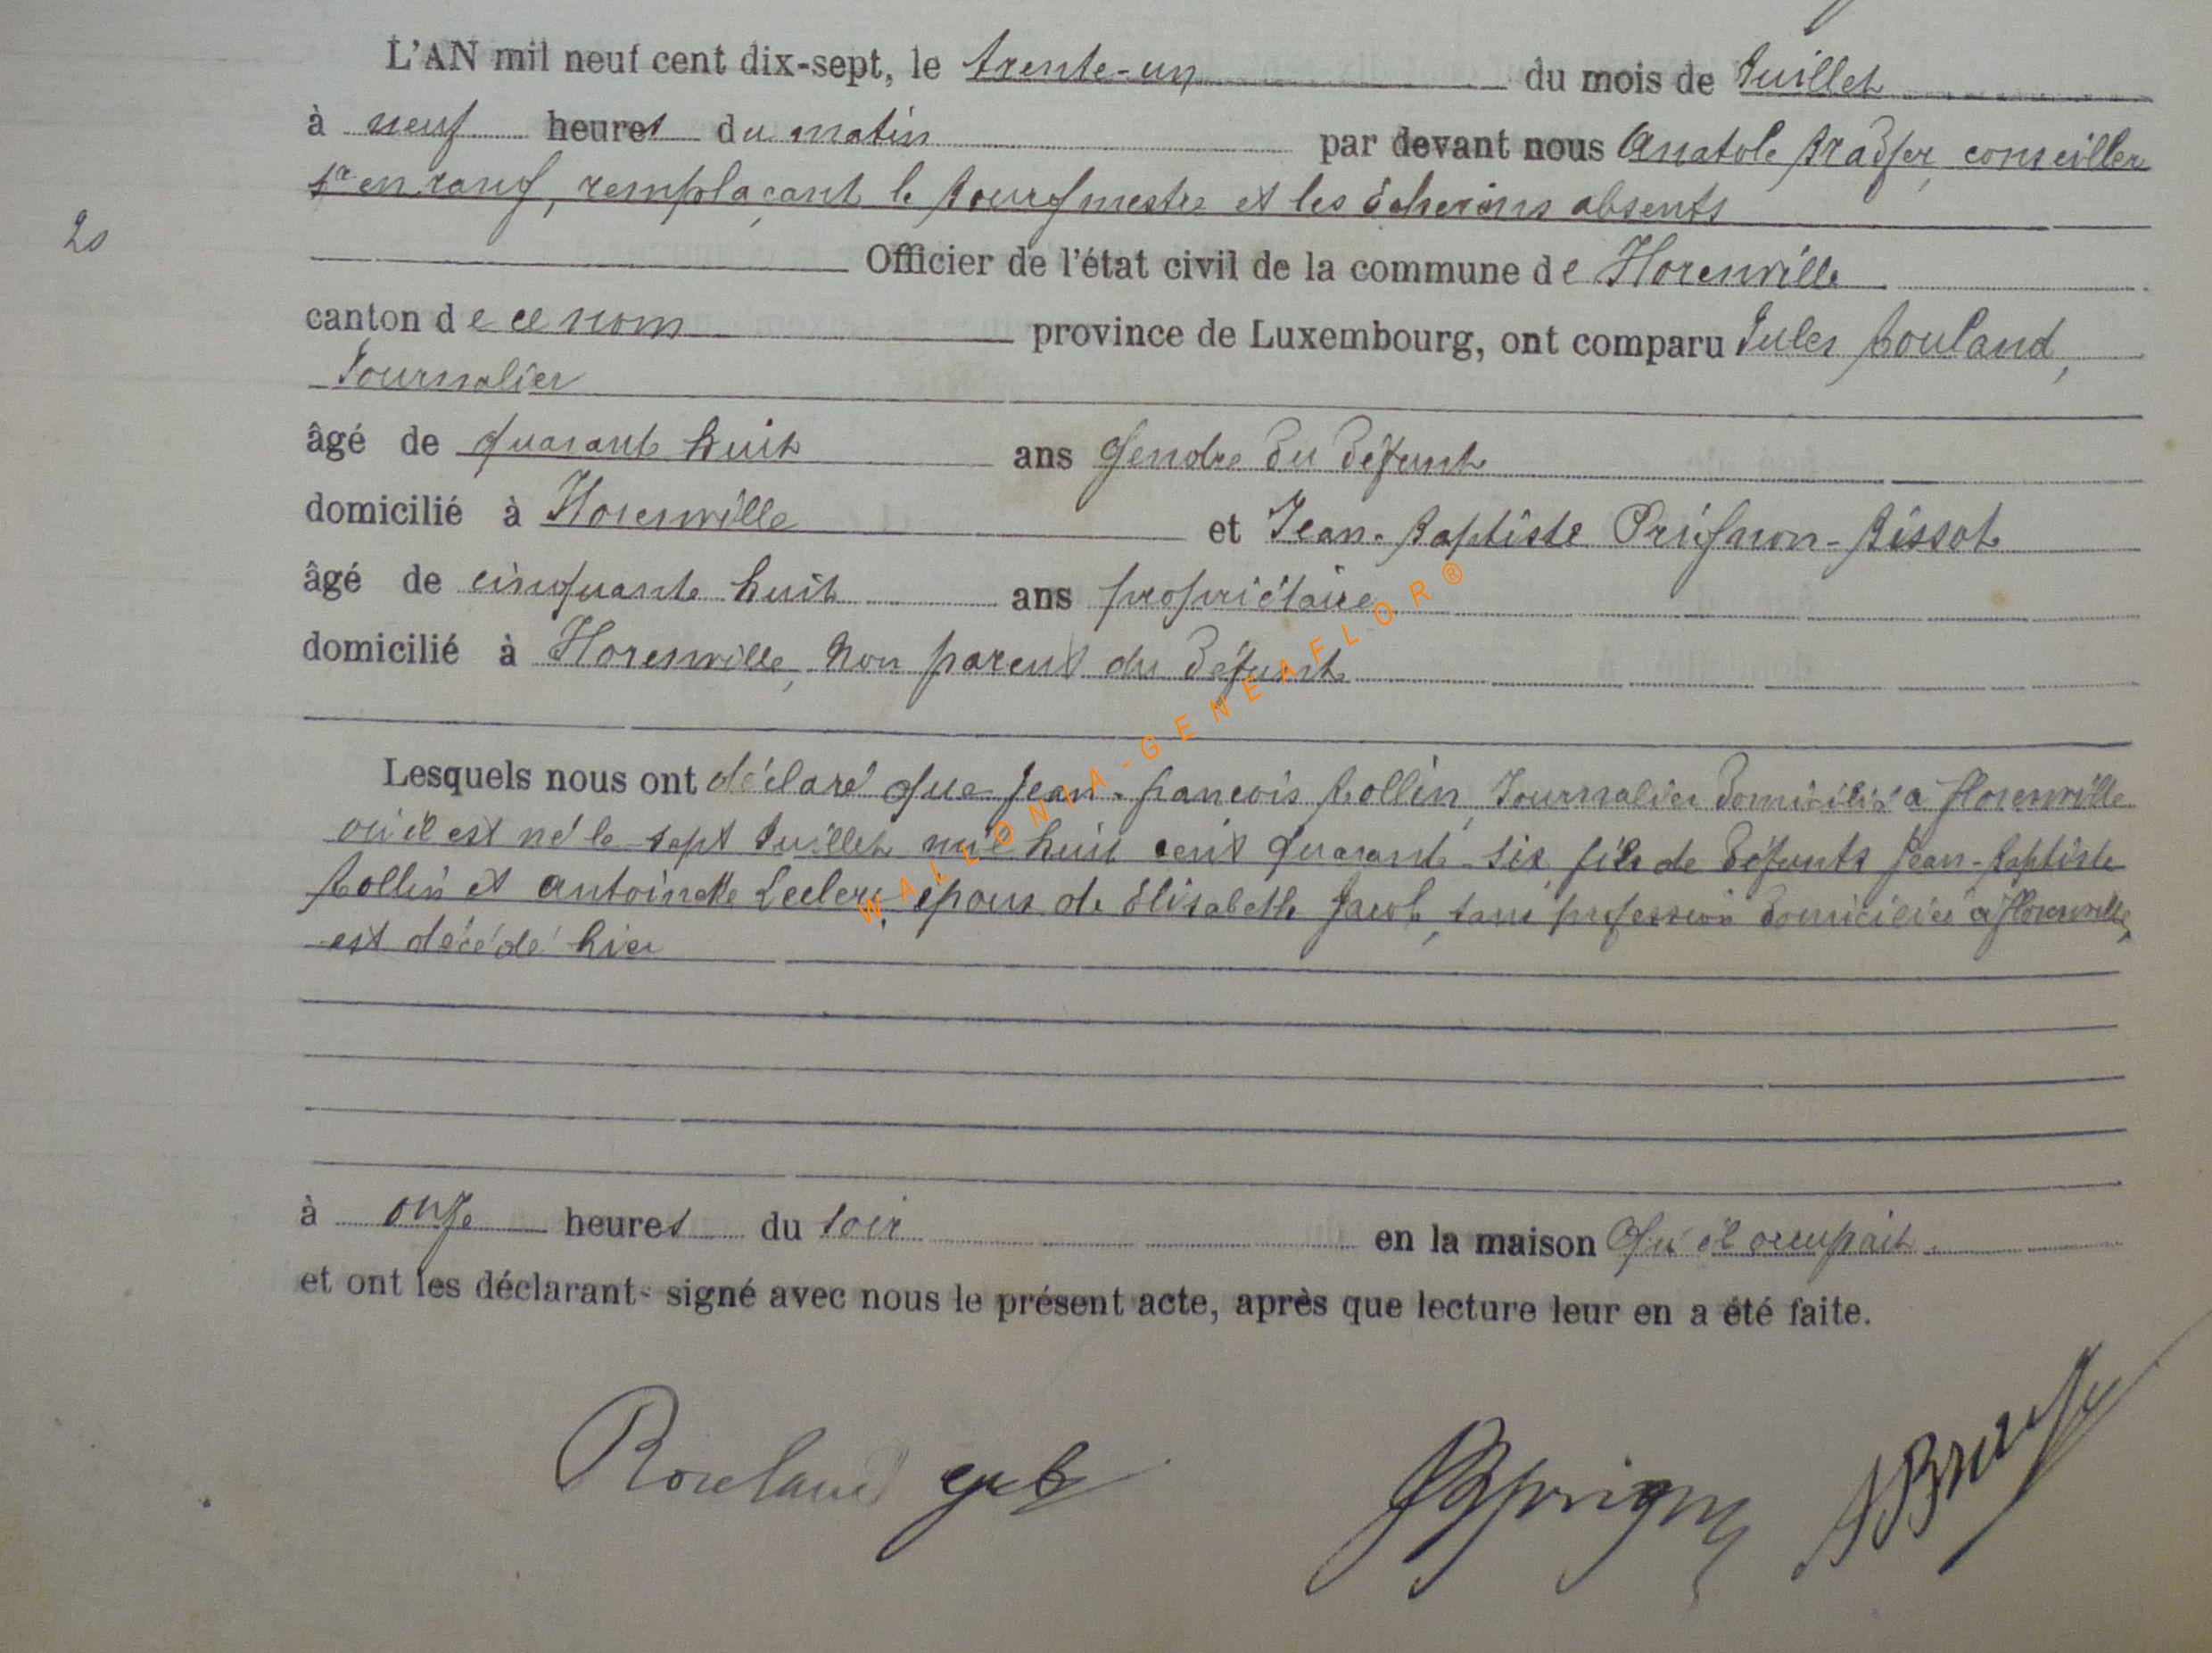 L'AN mil neuf cent dix-sept, le trente-un du mois de Juillet
à neuf heures du matin par devant nous Anatole conseiller
1er en rang, remplaçant le Bourgmestre et les Echevins absents
20
Officier de l'état civil de la commune de Florenville
canton de ce nom province de Luxembourg, ont comparu Jules Rouland,
Journalier
âgé de quarante huit ans Gendre du défunt
domicilié à Florenville et Jean-Baptiste Prignon-Bissot
âgé de cinquante huit ans propriétaire
domicilié à Florenville, non parent du défunt
WALLONIA-GENEAFLOR®
Lesquels nous ont déclaré que Jean-françois Collin, Journalier domicilié à florenville
où il est né le sept Juillet mil huit cent quarante-six, fils de défunts Jean-Baptiste
Collin et Antoinette Leclerc, époux de Elisabeth Jacob, sans profession domiciliée à florenville,
est décédé hier
à onze heures du soir en la maison qu'il occupait.
et ont les déclarant- signé avec nous le présent acte, après que lecture leur en a été faite.
Rouland JBprignon